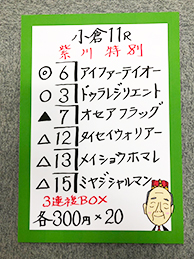 小倉11R
紫川特別
◎ 6 アイファーテイオー
○ 3 ドゥラレジリエント
▲ 7 オセアフラッグ
△ 12 タイセイウォリアー
△ 13 メイショウホマレ
△ 15 ミヤジシャルマン
3連複BOX
各300円×20